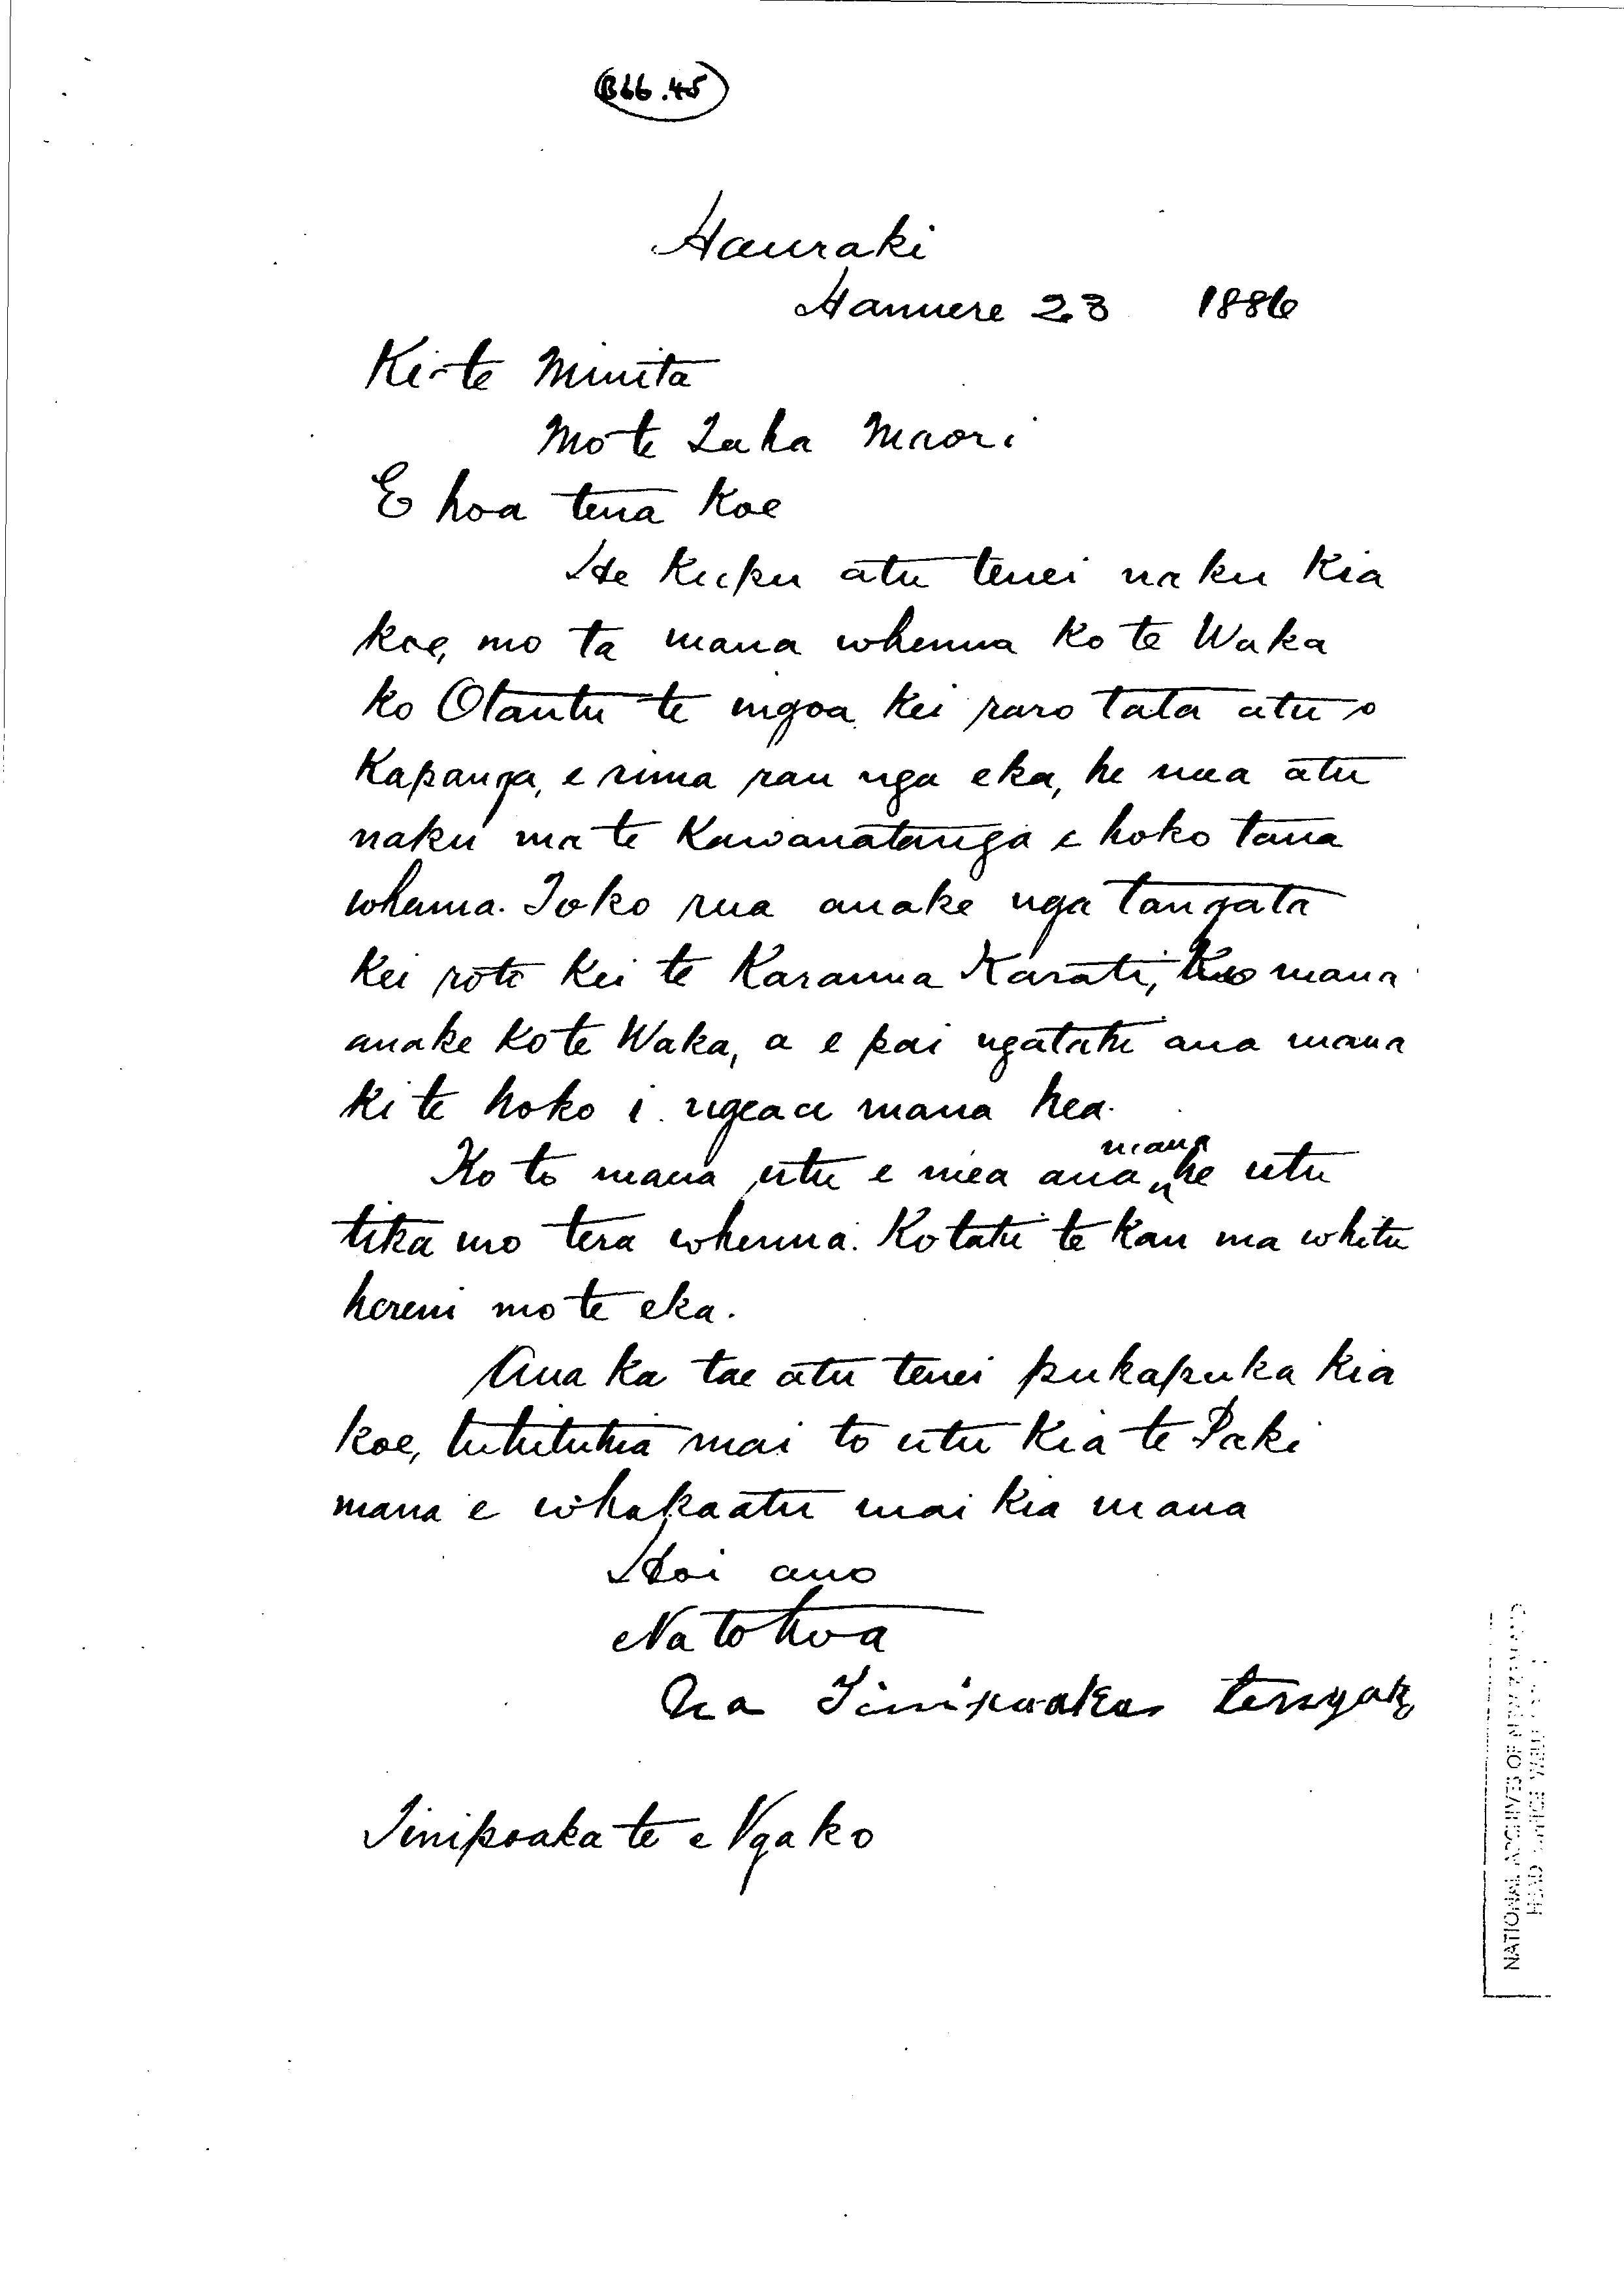 B66.45
Hauraki
Hanuere 23 1886
Ki te Minita
Mo te Taha Maori
E hoa tena koe
He kupu atu tenei naku kia
koe, mo ta maua whenua ko te Waka
ko Otautu te ingoa kei raro tata atu o
Kapanga, e rima rau nga eka, he mea atu
naku ma te Kawanatanga e hoko taua
whenua. Toko rua anake nga tangata
kei roto kei te Karauna Karati, ko maua
anake ko te Waka, a e pai ngatahi ana maua
ki te hoko i ngeaa maua hea.
Ko to maua utu e mea ana maua he utu
tika mo tera whenua. Kotahi te kau ma whitu
hereni mo te eka.
Ana ka tae atu tenei pukapuka kia
koe, tuhituhia mai to utu kia te Paki
mana e whakaatu mai kia maua
Hoi ano
Na to hoa
Na Tinipoaka
Tinipoaka te e Ngako
NATIONAL ARCHIVES OF NEW ZEALAND
HEAD OFFICE